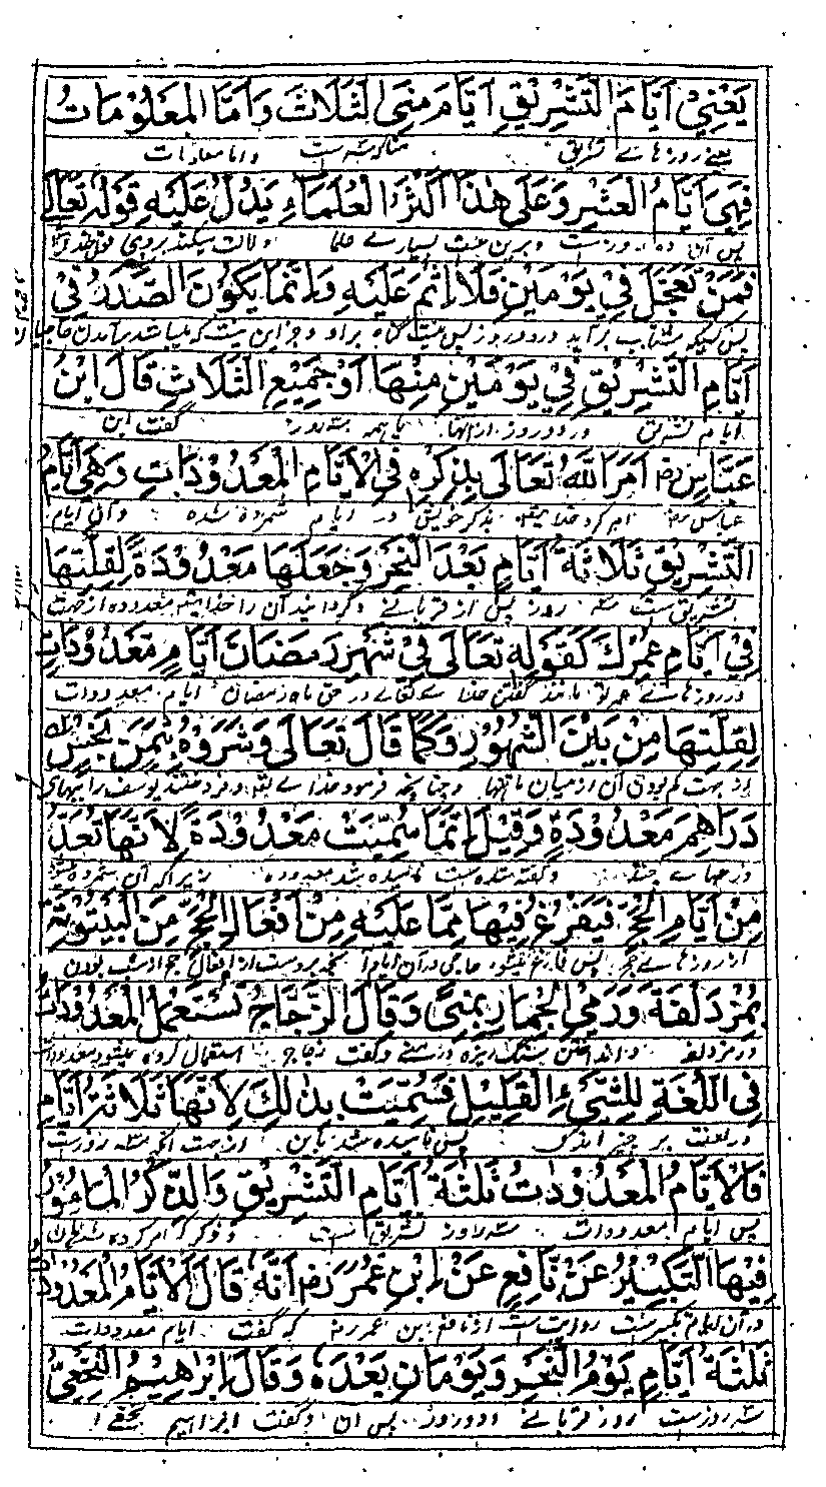 يَعْنِيْ اَيَّامَ التَّشْرِيْقِ اَيَّامَ مِنىَ الثَّلَاثَ وَاَمَّا الْمَعْلُوْمَاتُ
یعنے روزہائے تشریق واما معلومات
فَهِيَ اَيَّامُ الْعَشْرِ وَعَلَى هٰذَا اَكْثَرُ الْعُلَمَاءِ يَدُلُّ عَلَيْهِ قَوْلُهٗ تَعَالَى
پس آن دہ روزست وبرین ست بسیارے علما دلالت میکند بروی
فَمَنْ تَعَجَّلَ فِيْ يَوْمَيْنِ فَلَا اِثْمَ عَلَيْهِ وَاِنَّمَا يَكُوْنَ الصَّدَرُ فِيْ
پس کسیکہ شتاب برآید در دو روز پس نیست گناہ براو وجز این نیست کہ میباشد برآمدن
اَيَّامِ التَّشْرِيْقِ فِيْ يَوْمَيْنِ مِنْهَا اَوْ جَمِيْعِ الثَّلَاثِ قَالَ ابْنُ
ایام تشریق در دو روز ازانہا یا ہمہ گفت ابن
عَبَّاسٍ رض اَمَرَ اللهُ تَعَالَى بِذِكْرِهٖ فِى الْاَيَّامِ الْمَعْدُوْدَاتِ وَهِيَ اَيَّامُ
عباس رض امر کرد بذکر خویش در ایام شمردہ شدہ وآن ایام
التَّشْرِيْقِ ثَلَاثَةُ اَيَّامٍ بَعْدَ النَّحْرِ وَجَعَلَهَا مَعْدُوْدَةً لِقِلَّتِهَا
تشریق ست سہ روز پس از قربانے وگردانید آن را معدودہ از جہت
فِيْ اَيَّامِ عُمُرِكَ كَقَوْلِهٖ تَعَالَى فِيْ شَهْرِ رَمَضَانَ اَيَّامٍ مَعْدُوْدَاتٍ
در روزہائے عمر تو مانند گفتن خدائے تعالے در حق ماہ رمضان ایام معدودات
لِقِلَّتِهَا مِنْ بَيْنِ الشُّهُوْرِ وَكَمَا قَالَ تَعَالَى وَشَرَوْهُ بِثَمَنٍ بَخْسٍ
از جہت کم بودن آن از میان ماہہا وچنانچہ فرمود خدائے تعالی وفروختند یوسف را
دَرَاهِمَ مَعْدُوْدَةٍ وَقِيْلَ اِنَّمَا سُمِّيَتْ مَعْدُوْدَةً لِاَنَّهَا تُعَدُّ
درہمہاے چند وگفتہ شدہ ست نامیدہ شد معدودہ زیراکہ آن شمردہ
مِنْ اَيَّامِ الْحَجِّ فَيَفْرُغُ فِيْهَا مِمَّا عَلَيْهِ مِنْ اَفْعَالِ الْحَجِّ مِنَ الْبَيْتُوْتَةِ
از روزہائے حج پس فارغ میشود حاجی در آن ایام از آنچہ بروست از افعال حج از شب بودن
بِمُزْدَلِفَةَ وَرَمْيِ الْجِمَارِ بِمِنىً وَقَالَ الزَّجَّاجُ تُسْتَعْمَلُ الْمَعْدُوْدَاتُ
در مزدلفہ وانداختن سنگ ریزہ در منے وگفت زجاج استعمال کردہ میشود معدودات
فِى اللُّغَةِ لِلشَّيْءِ الْقَلِيْلِ فَسُمِّيَتْ بِذٰلِكَ لِاَنَّهَا ثَلَاثَةُ اَيَّامٍ
در لغت بر چیز اندک پس نامیدہ شد باین از جہت آنکہ سہ روزست
فَالْاَيَّامُ الْمَعْدُوْدَاتُ ثَلٰثَةُ اَيَّامِ التَّشْرِيْقِ وَالذِّكْرُ الْمَامُوْرُ
پس ایام معدودات سہ روز تشریق ست وذکرکہ امر کردہ شد
فِيْهَا التَّكْبِيْرُ عَنْ نَافِعٍ عَنْ اِبْنِ عُمَرَ رض اَنَّهٗ قَالَ الْاَيَّامُ الْمَعْدُوْدَاتُ
در آن ایام تکبیرست روایت ست از نافع ابن عمر رض کہ گفت ایام معدودات
ثَلٰثَةُ اَيَّامٍ يَوْمُ النَّحْرِ وَيَوْمَانِ بَعْدَهٗ وَقَالَ اِبْرٰهِيْمُ النَّخْعِيُّ
سہ روزست روز قربانے ودو روز پس آن وگفت ابراہیم نخعے